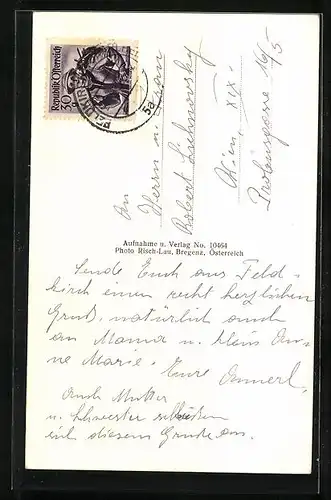 Republik Österreich
30
FELDKIRCH
5a
An
Herrn u. Frau
Robert
Wien, XIX.
16/5
Aufnahme u. Verlag No. 10464
Photo Risch-Lau, Bregenz, Österreich
Sende Euch aus Feld-
kirch einen recht herzlichen
Gruß, natürlich auch
an Mama u. klein An-
ne Marie. Eure Annerl.
Auch Mutter
u. Schwester schließen
sich diesem Gruße an.